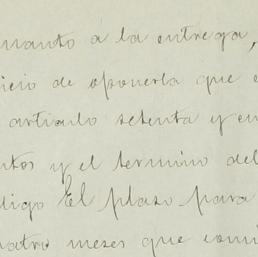 cuanto á la entrega,
icio de oponerla que e
articulo setenta y cu
ntos y el termino del
digo El plazo para
uatro meses que comi